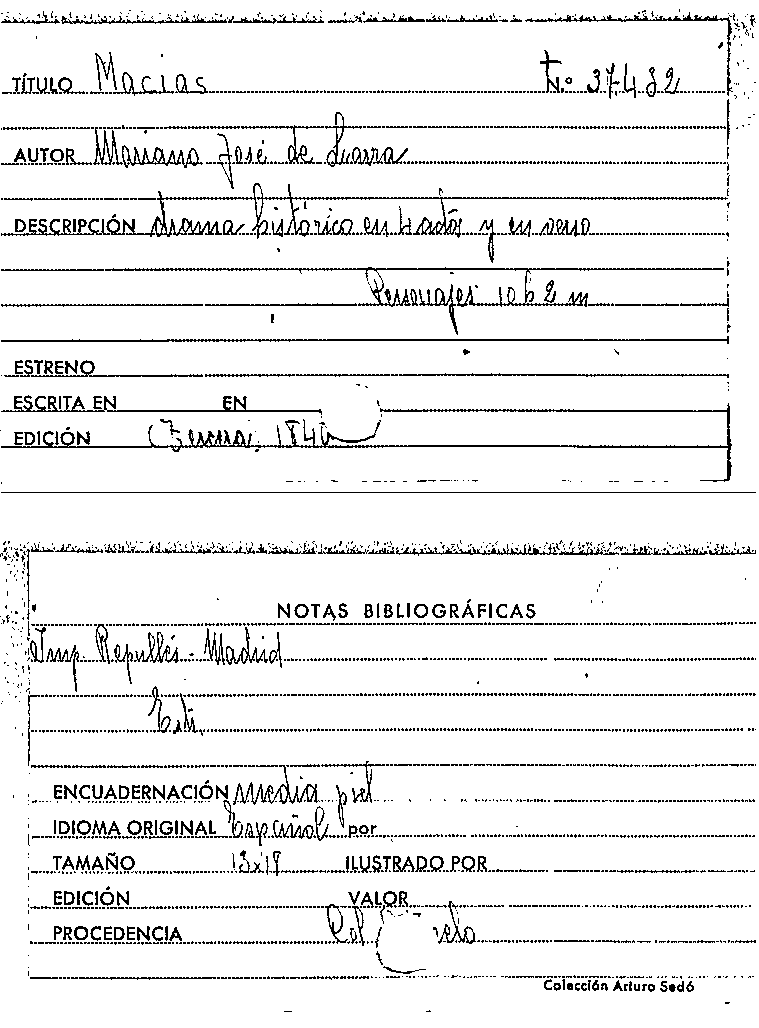 TÍTULO Macias N.º 37432
AUTOR Mariano José de Larra
DESCRIPCIÓN drama histórico en 4 actos y en verso
Personajes 10 h 2 m
ESTRENO
ESCRITA EN EN
EDICIÓN 1840
NOTAS BIBLIOGRÁFICAS
Imp. Repullés - Madrid
ENCUADERNACIÓN media piel
IDIOMA ORIGINAL Español por
TAMAÑO 13x19 ILUSTRADO POR
EDICIÓN VALOR
PROCEDENCIA
Colección Arturo Sedó